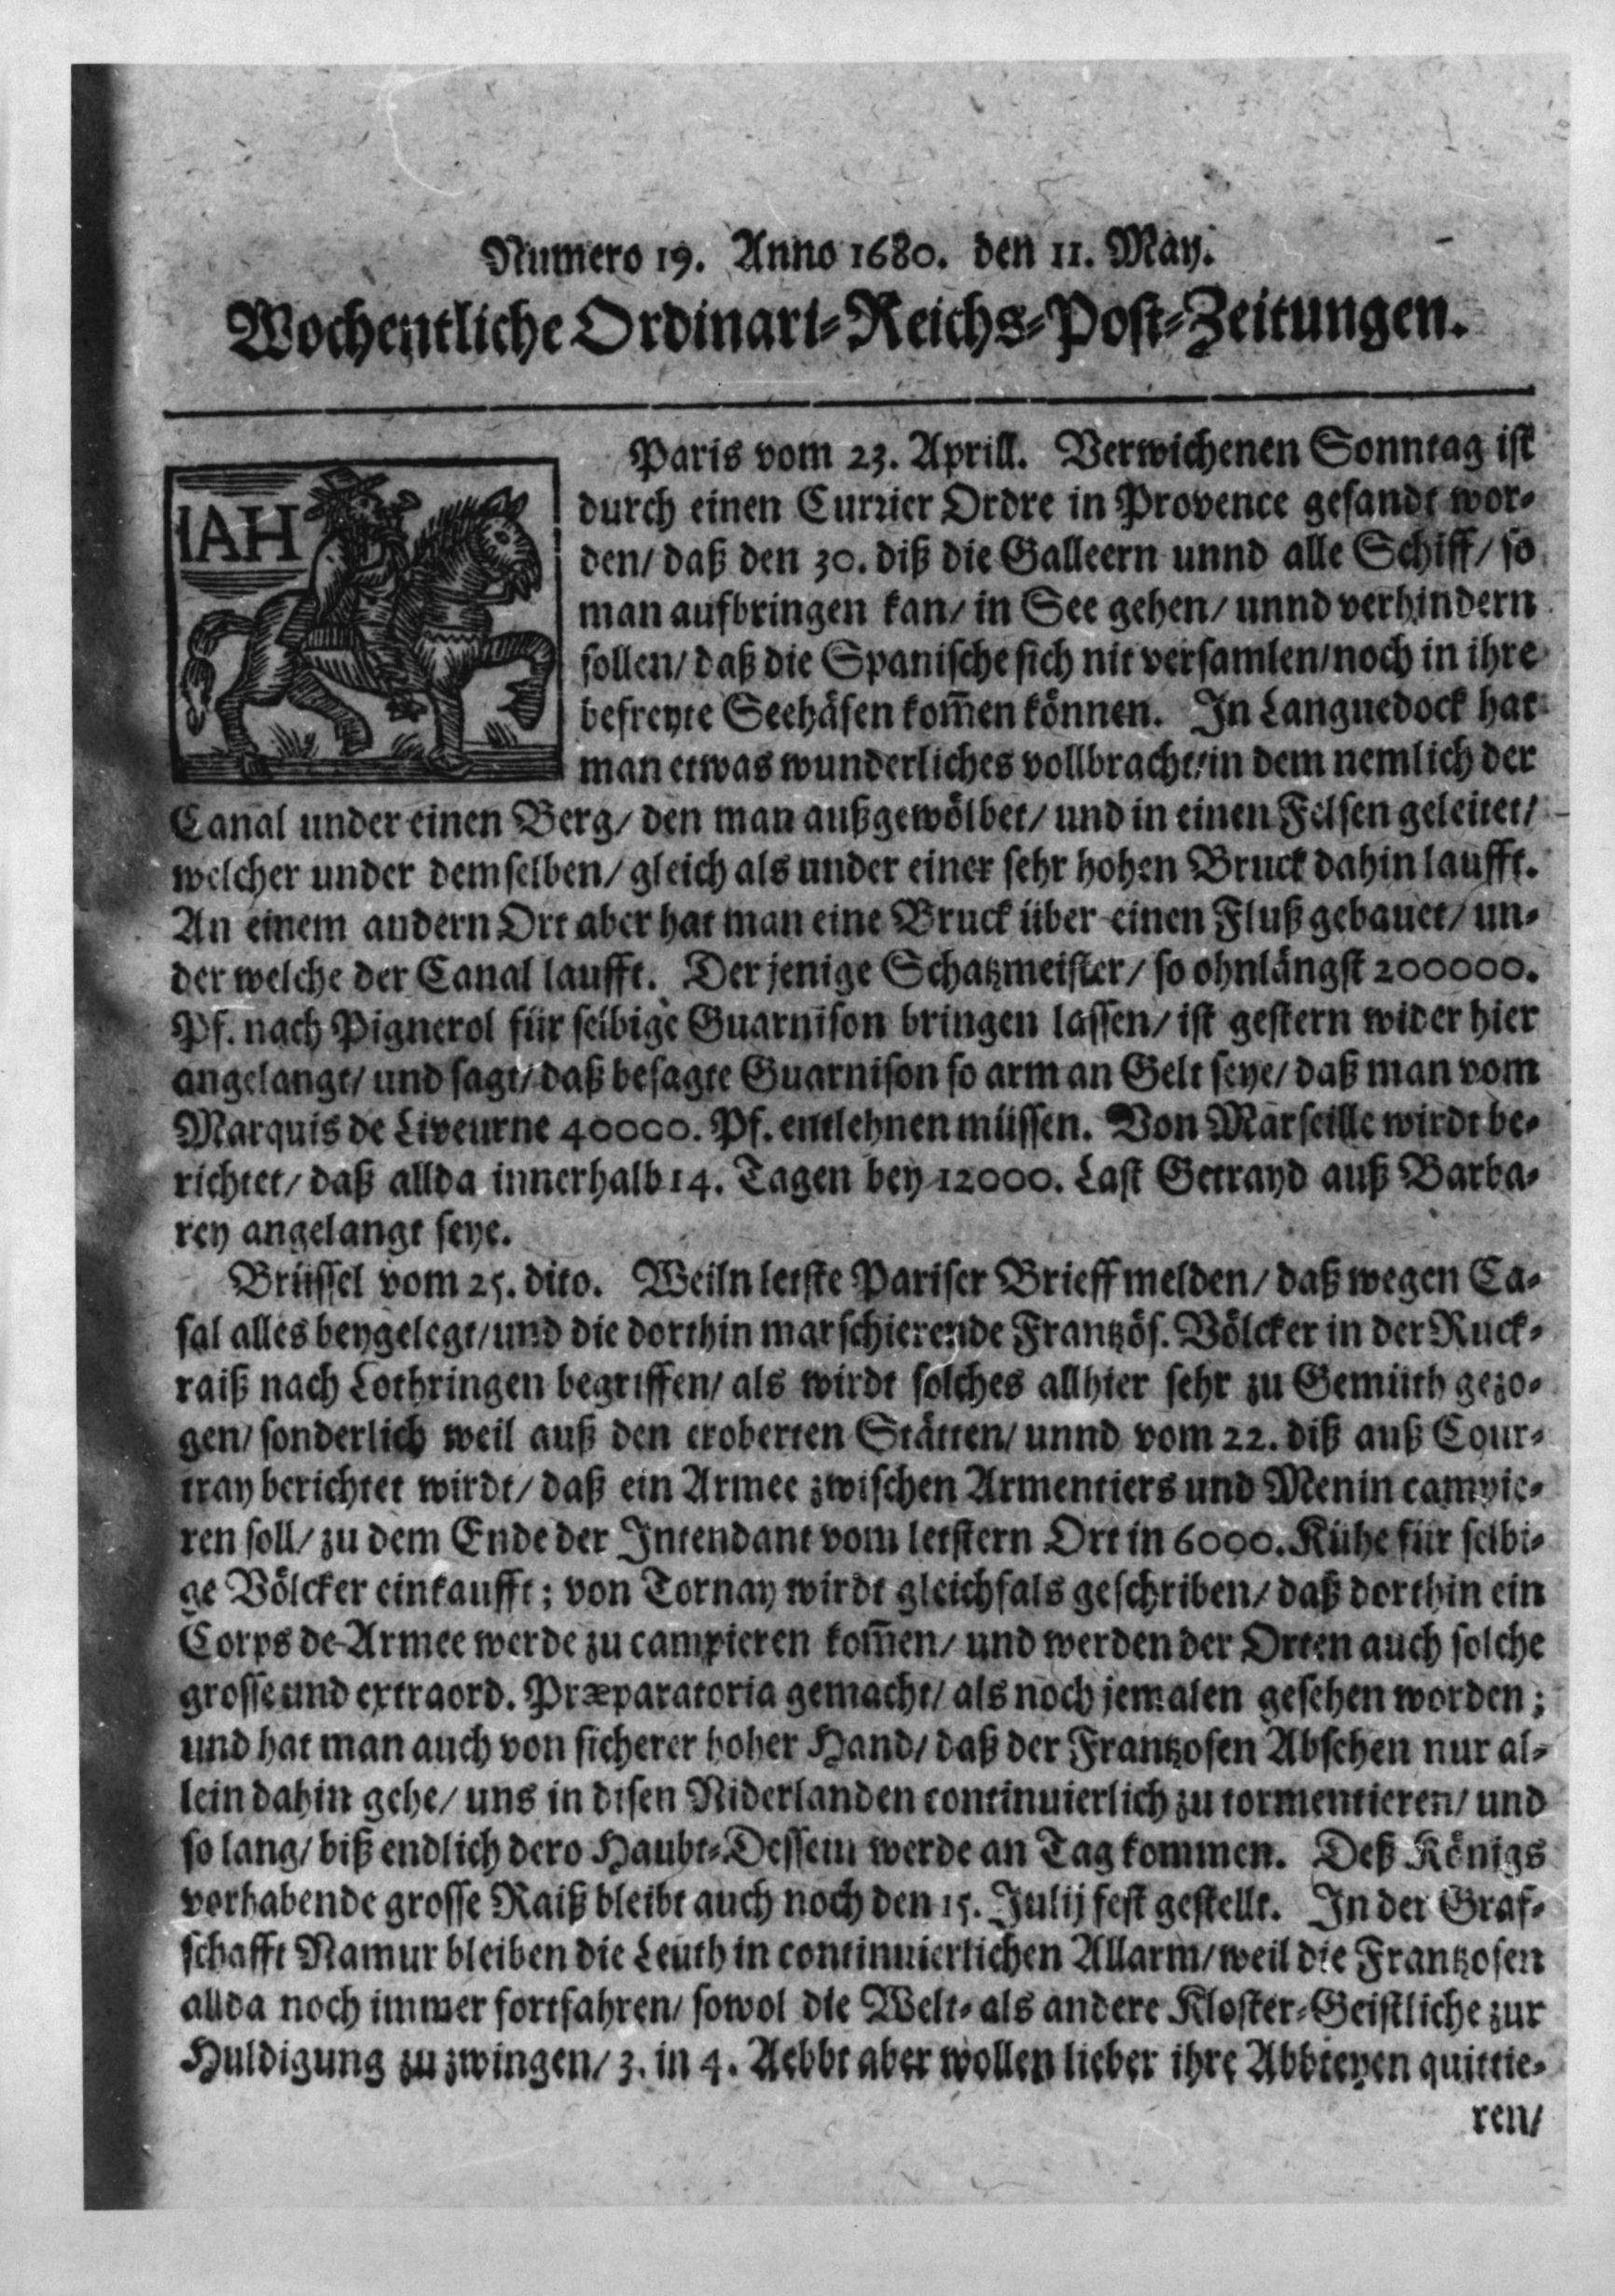 Numero 19. Anno 1680. den 11. May.
Wochentliche Ordinari-Reichs-Post-Zeitungen.
IAH
Paris vom 23. Aprill. Verwichenen Sonntag ist
durch einen Currier Ordre in Provence gesandt wor-
den/ daß den 30. diß die Galleern unnd alle Schiff/ so
man aufbringen kan/ in See gehen/ unnd verhindern
sollen/ daß die Spanische sich nit versamlen/ noch in ihre
befreyte Seehäfen kom̃en können. In Languedock hat
man etwas wunderliches vollbracht/ in dem nemlich der
Canal under einen Berg/ den man außgewölbet/ und in einen Felsen geleitet/
welcher under demselben/ gleich als under einer sehr hohen Bruck dahin laufft.
An einem andern Ort aber hat man eine Bruck über einen Fluß gebauet/ un-
der welche der Canal laufft. Der jenige Schatzmeister/ so ohnlängst 200000.
Pf. nach Pignerol für selbige Guarnison bringen lassen/ ist gestern wider hier
angelangt/ und sagt/ daß besagte Guarnison so arm an Gelt seye/ daß man vom
Marquis de Liveurne 40000. Pf. entlehnen müssen. Von Marseille wirdt be-
richtet/ daß allda innerhalb 14. Tagen bey 12000. Last Getrayd auß Barba-
rey angelangt seye.
Brüssel vom 25. dito. Weiln letste Pariser Brieff melden/ daß wegen Ca-
sal alles beygelegt/ und die dorthin marschierende Frantzös. Völcker in der Ruck-
raiß nach Lothringen begriffen/ als wirdt solches allhier sehr zu Gemüth gezo-
gen/ sonderlich weil auß den eroberten Stätten/ unnd vom 22. diß auß Cour-
tray berichtet wirdt/ daß ein Armee zwischen Armentiers und Menin campie-
ren soll/ zu dem Ende der Intendant vom letstern Ort in 6000. Kühe für selbi-
ge Völcker einkaufft; von Tornay wirdt gleichfals geschriben/ daß dorthin ein
Corps de Armee werde zu campieren kom̃en/ und werden der Orten auch solche
grosse und extraord. Præparatoria gemacht/ als noch jemalen gesehen worden;
und hat man auch von sicherer hoher Hand/ daß der Frantzosen Absehen nur al-
lein dahin gehe/ uns in disen Niderlanden continuierlich zu tormentieren/ und
so lang/ biß endlich dero Haubt-Dessein werde an Tag kommen. Deß Königs
vorhabende grosse Raiß bleibt auch noch den 15. Julij fest gestellt. In der Graf-
schafft Namur bleiben die Leuth in continuierlichen Allarm/ weil die Frantzosen
allda noch immer fortfahren/ sowol die Welt- als andere Kloster-Geistliche zur
Huldigung zu zwingen/ 3. in 4. Aebbt aber wollen lieber ihre Abbteyen quittie-
ren/